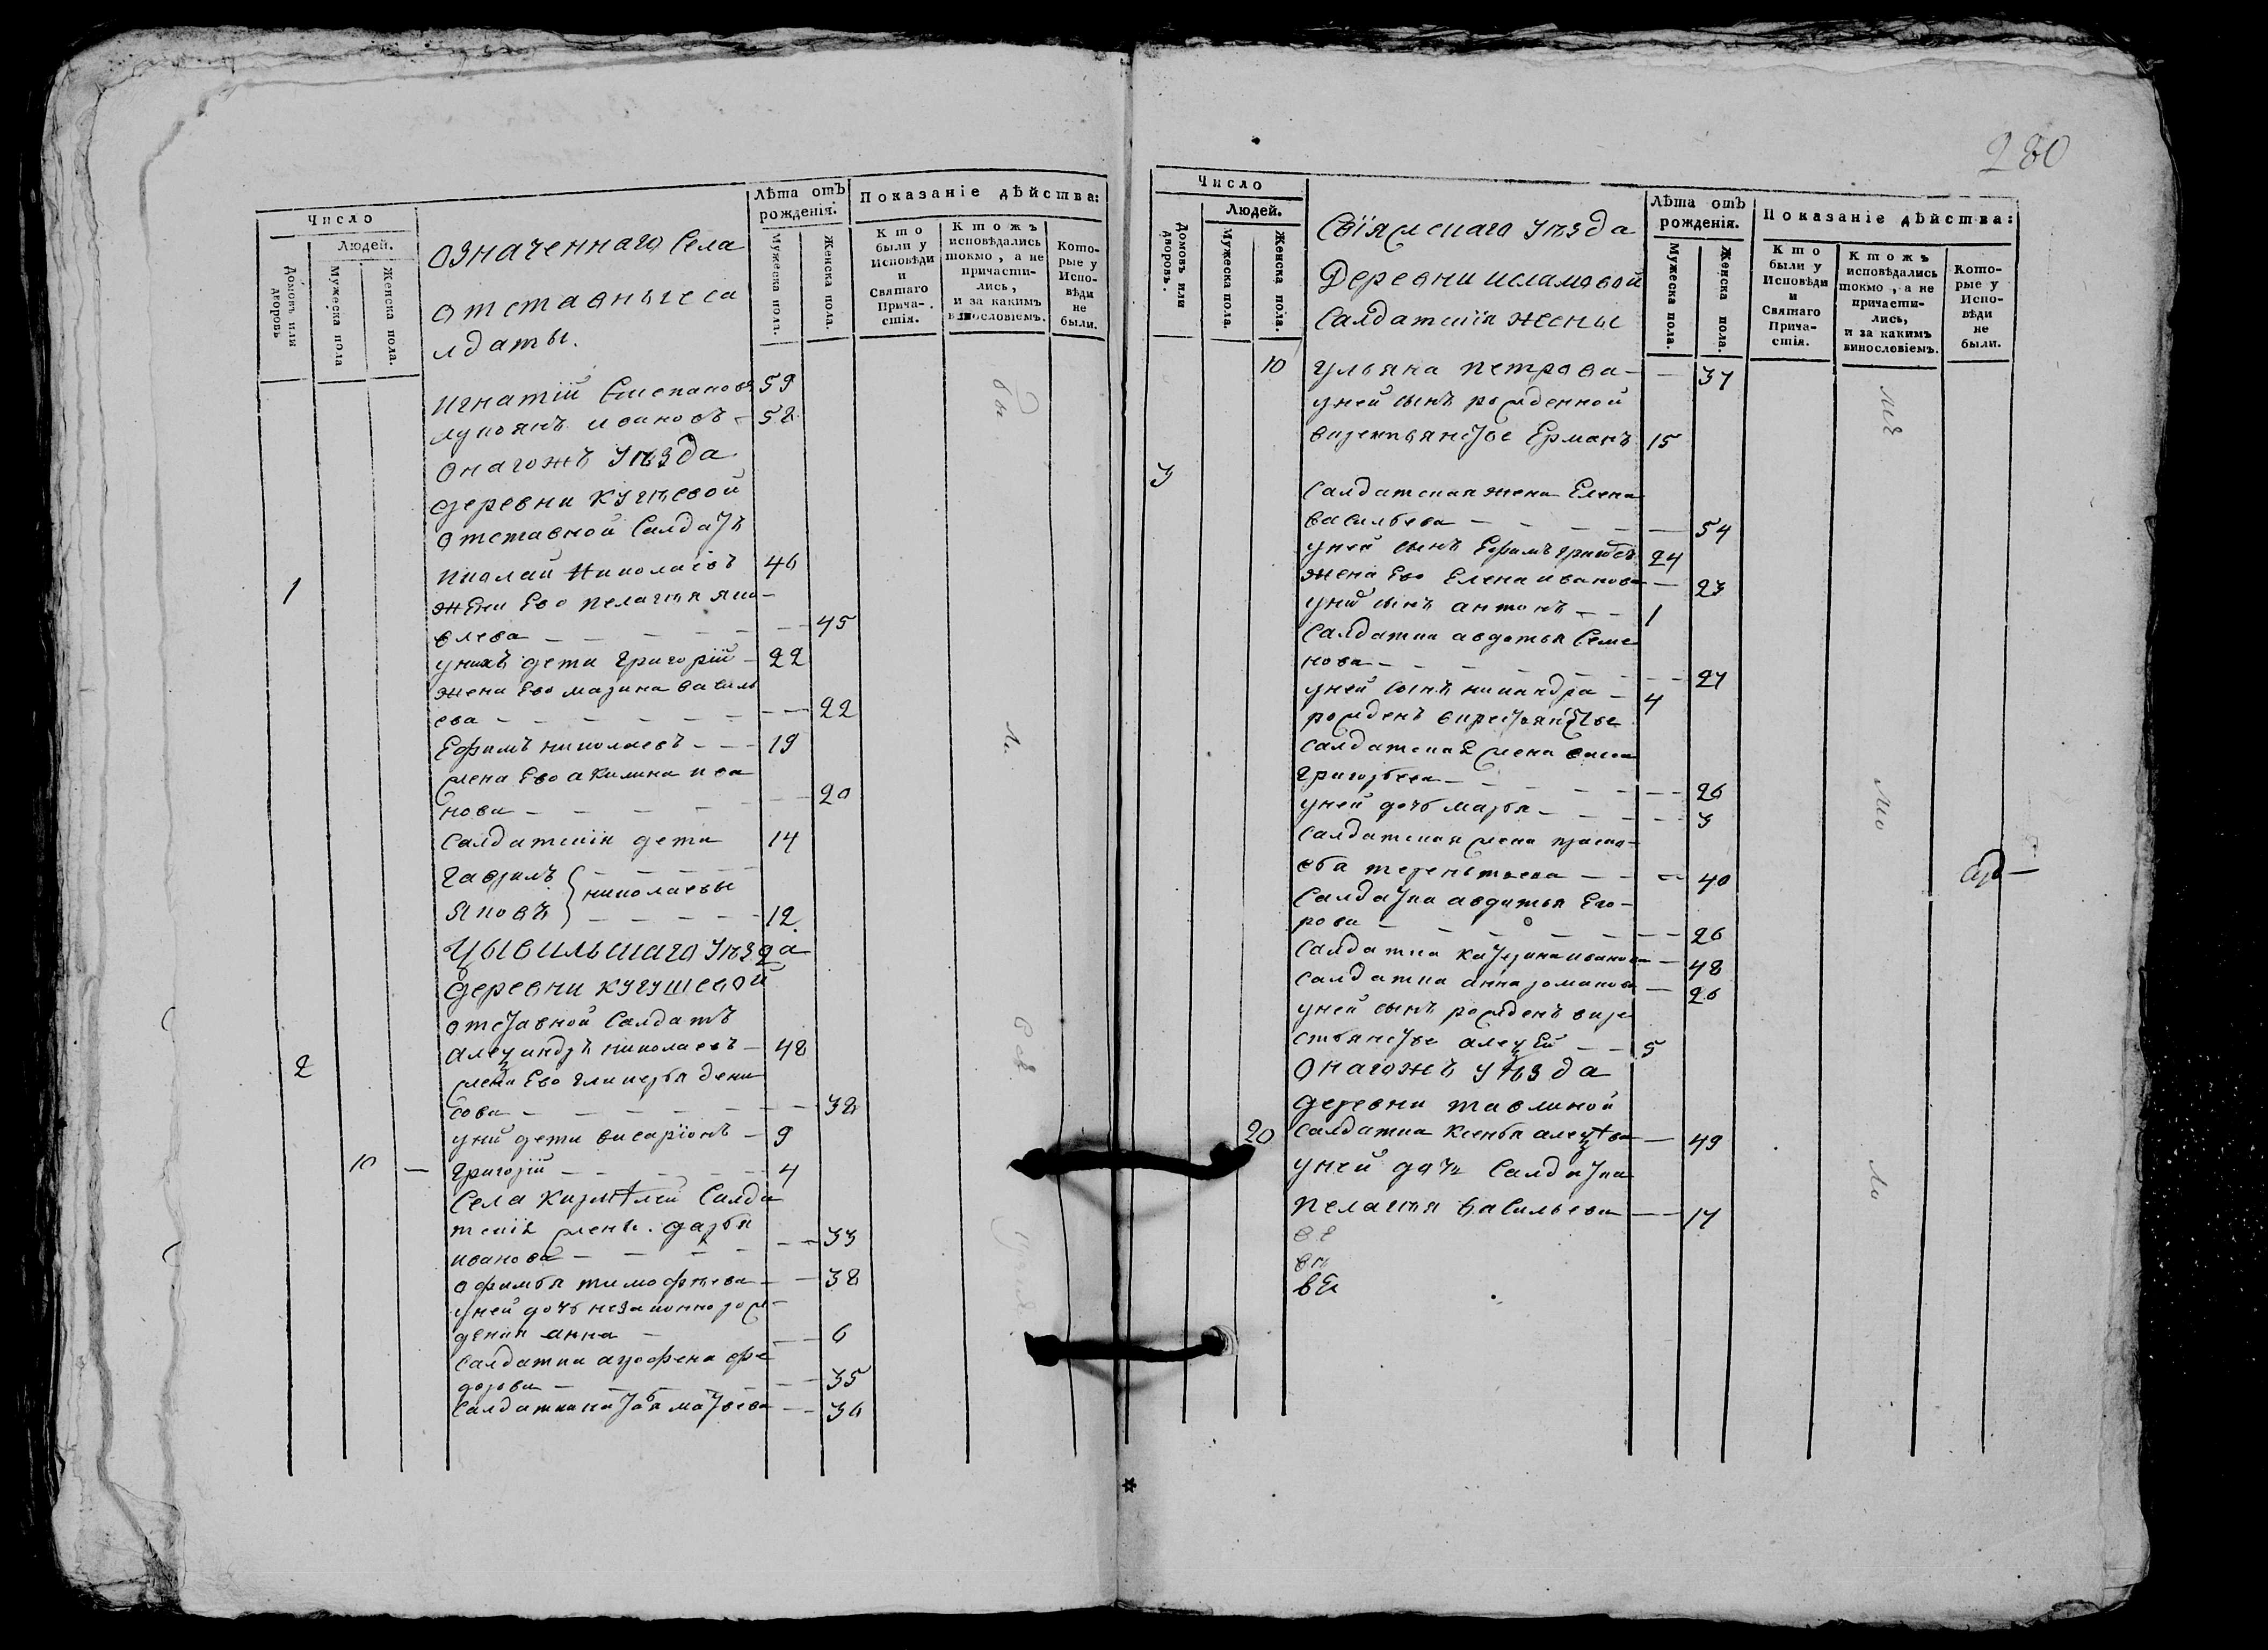 Число
Людей.
Домовъ или дворовъ
Мужеска пола
Женска пола.
означеннаго Села
отставные са
лдаты.
Лѣта отъ рожденія.
Мужеска пола.
Женска пола.
Показаніе дѣйства:
Кто были у Исповѣди и Святаго Прича-стія.
Ктожъ исповѣдались токмо, а не причасти-лись, и за какимъ винословіемъ.
Кото-рые у Испо-вѣди не были.
игнатій Степановъ 59
лукоянъ ивановъ - 58
Онагожъ уѣзда
деревни кугѣевой
отставной Салдатъ
1 николай николаевъ 46
жена Ево пелагея яко-
влева - - - - - 45
унихъ дети григорій - 22
жена Ево марина василь
ева - - - - - 22
Ефимъ николаевъ - - 19
жена Ево акилина ива
нова - - - - 20
Салдатскія дети 14
гаврилъ
яковъ } николаевы 12
Цывильшаго уѣзда
деревни кугушевой
отставной Салдатъ
2 алеѯандръ николаевъ - 48
жена Ево гликерья дени
сова - - - - - 38
уний дети висаріонъ - 9
10 - григорій - - - - 4
Села
Салда
тскіе жены. дарья
иванова - - - - 33
офимья тимофѣева - - 38
уней дочь незаконно рож-
деная анна - - 6
Салдатка агрофена фе
дорова - - - - 35
Салдатка матвеева - - 36
280
Число
Людей.
Домовъ или дворовъ.
Мужеска пола.
Женска пола.
Свіяжскаго уѣзда
Деревни исламовой
Салдатскія жены
Лѣта отъ рожденія.
Мужеска пола.
Женска пола.
Показаніе дѣйства:
Кто были у Исповѣди и Святаго Прича-стія.
Ктожъ исповѣдались токмо, а не причасти-лись, и за какимъ винословіемъ.
Кото-рые у Испо-вѣди не были.
10 ульяна петрова - - 37
уней сынъ рожденной
вкрестьянстве Ерманъ 15
3 Салдатская жена Елена
васильева - - - - 54
уней сынъ Ефимъ 24
жена Ево Елена иванова - 23
уний сынъ антонъ - - 1
Салдатка авдотья Семе
нова - - - - - 27
уней сынъ никандра - 4
рожденъ вкрестьянстве
Салдатская жена
григорьева - - - - 26
уней дочь марья - - - 3
Салдатская жена праско-
вья терентьева - - - 40
Салдатка авдотья Его-
рова - - - - - 26
Салдатка катерина иванова - 48
Салдатка анна романова - 26
уней сынъ рожденъ вкре
стьянстве алеѯей - - 5
Онагожъ уѣзда
деревни тавлиной
20 Салдатка ксенья - 49
уней дочь Салдатка
пелагея васильева - - 17